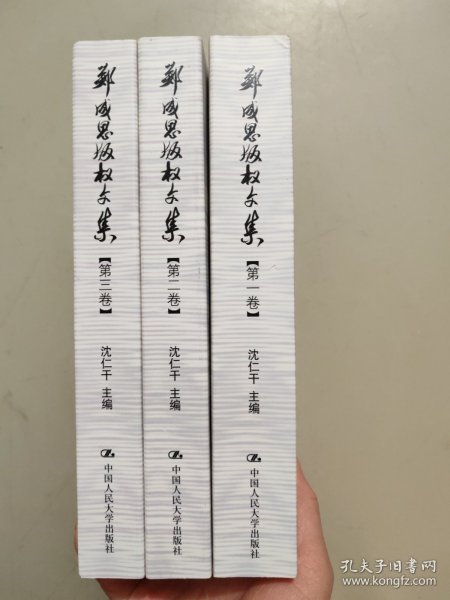 郑成思版权文集
【第三卷】
沈仁干 主编
中国人民大学出版社
郑成思版权文集
【第二卷】
沈仁干 主编
中国人民大学出版社
郑成思版权文集
【第一卷】
沈仁干 主编
中国人民大学出版社
孔夫子旧书网
www.kongfz.com